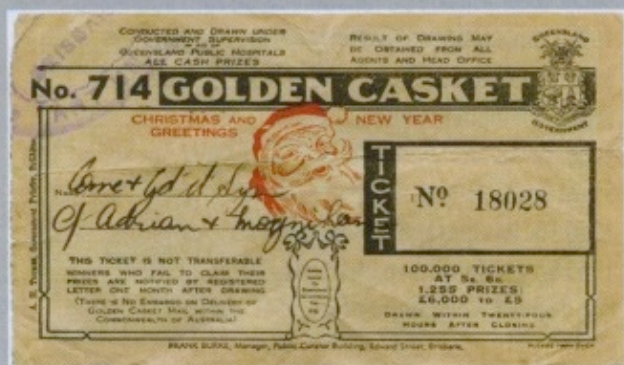 CONDUCTED AND DRAWN UNDER
GOVERNMENT SUPERVISION
QUEENSLAND PUBLIC HOSPITALS
ALL CASH PRIZES
RESULT OF DRAWING MAY
BE OBTAINED FROM ALL
AGENTS AND HEAD OFFICE
QUEENSLAND
GOVERNMENT
No. 714 GOLDEN CASKET
CHRISTMAS AND NEW YEAR
GREETINGS
TICKET
No 18028
Adrian +
THIS TICKET IS NOT TRANSFERABLE
WINNERS WHO FAIL TO CLAIM THEIR
PRIZES ARE NOTIFIED BY REGISTERED
LETTER ONE MONTH AFTER DRAWING
(THERE IS NO EMBARGO ON DELIVERY OF
GOLDEN CASKET MAIL WITHIN THE
COMMONWEALTH OF AUSTRALIA)
100,000 TICKETS
AT 5s. 6D.
1,255 PRIZES
£6,000 TO £5
DRAWN WITHIN TWENTY-FOUR
HOURS AFTER CLOSING
FRANK BURKE, Manager, Public Curator Building, Edward Street, Brisbane.